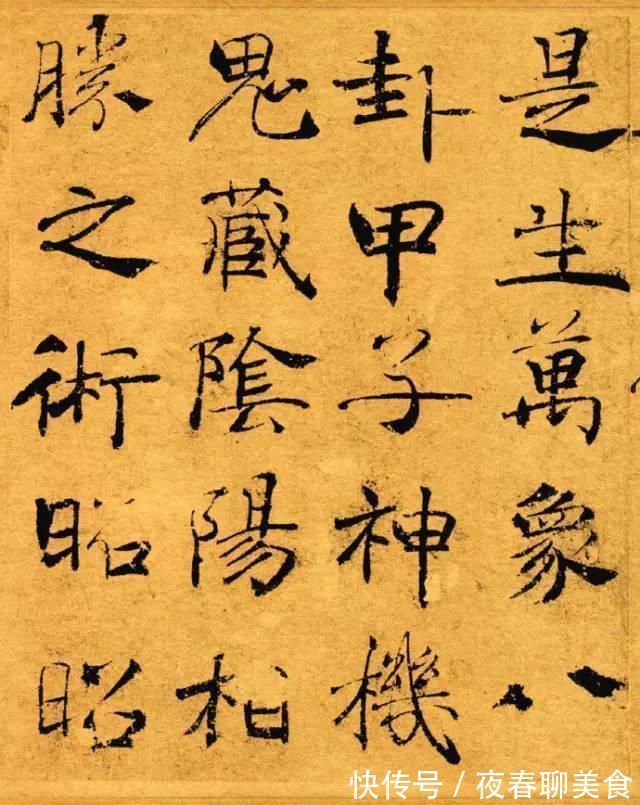 是生萬象八
卦甲子神機
鬼藏陰陽相
勝之術昭昭
快传号/夜春聊美食